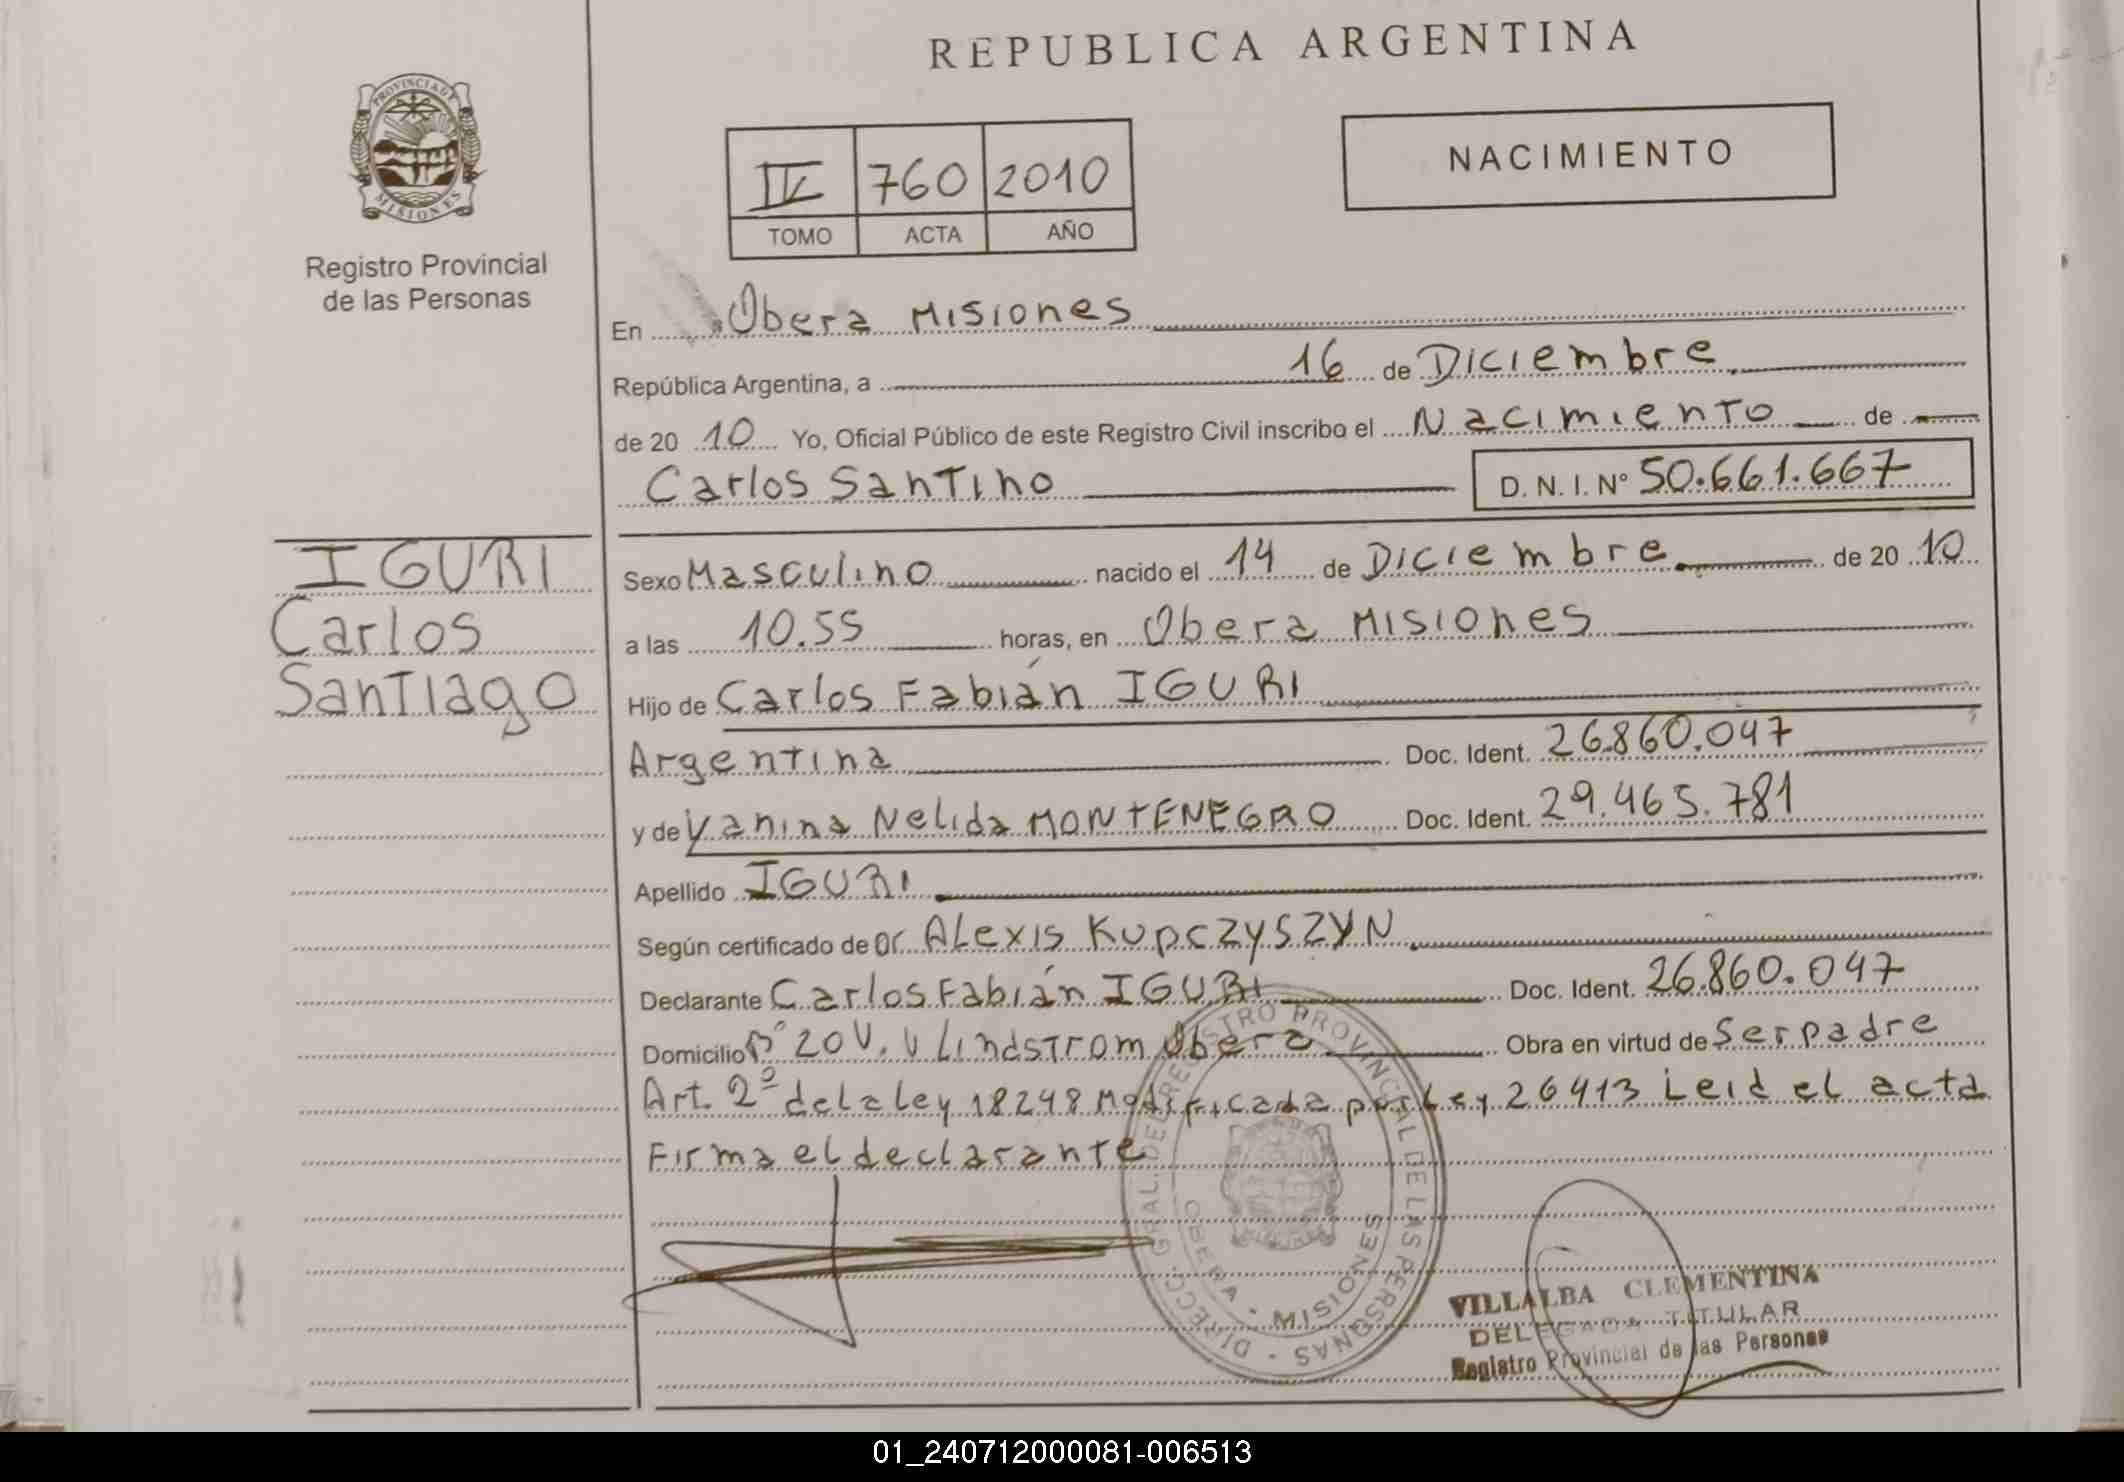 REPUBLICA ARGENTINA
PROVINCIA DE
MISIONES
Registro Provincial
de las Personas
IV 760 2010
TOMO ACTA AÑO
NACIMIENTO
En Obera Misiones
República Argentina, a 16 de Diciembre
de 20 10 Yo, Oficial Público de este Registro Civil inscribo el Nacimiento de
Carlos Santino D. N. I. Nº 50.661.667
IGURI
Carlos
Santiago
Sexo Masculino nacido el 14 de Diciembre de 20 10
a las 10.55 horas, en Obera Misiones
Hijo de Carlos Fabián IGURI
Argentina Doc. Ident. 26.860.047
y de Yanina Nelida MONTENEGRO Doc. Ident. 29.465.781
Apellido IGURI
Según certificado de Dr Alexis Kupczyszyn
Declarante Carlos Fabián IGURI Doc. Ident. 26.860.047
Domicilio Bº 20 V. V Lindstrom Obera Obra en virtud de Ser padre
Art. 2º de la ley 18248 Modificada por Ley 26413 Leid el acta
Firma el declarante
DIRECC. GRAL. DEL REGISTRO PROVINCIAL DE LAS PERSONAS
OBERA - MISIONES
VILLALBA CLEMENTINA
DELEGADA TITULAR
Registro Provincial de las Personas
01_240712000081-006513